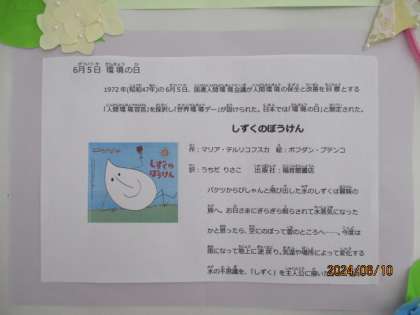 6月5日 環境の日
1972年(昭和47年)の6月5日、国連人間環境会議が人間環境の保全と改善を目標とする
「人間環境宣言」を採択し「世界環境デー」が設けられた。日本では「環境の日」と制定された。
しずくのぼうけん
作：マリア・テルリコフスカ 絵：ボフダン・ブテンコ
訳：うちだ りさこ 出版社：福音館書店
バケツからぴしゃんと飛び出した水のしずくは冒険の
旅へ。お日さまにぎらぎら照らされて水蒸気になった
かと思ったら、空にのぼって雲のところへ……。今度は
雨になって地上に逆戻り。気温や場所によって変化する
水の不思議を、「しずく」を主人公に描いた
しずくの
ぼうけん
2024/06/10